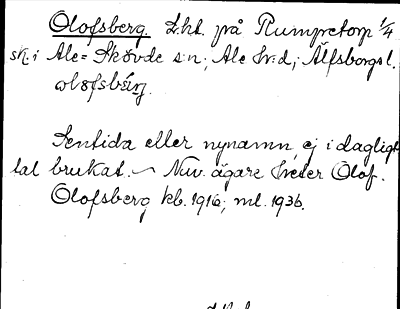 Olofsberg. Lht. på Rumpretorp 1/4
sk. i Ale-Skövde s:n; Ale hd; Älfsborgs l.
Sentida eller nynamn, ej i dagligt
tal brukat. — Nuv. ägare heter Olof.
Olofsberg kb. 1916; ml. 1936.